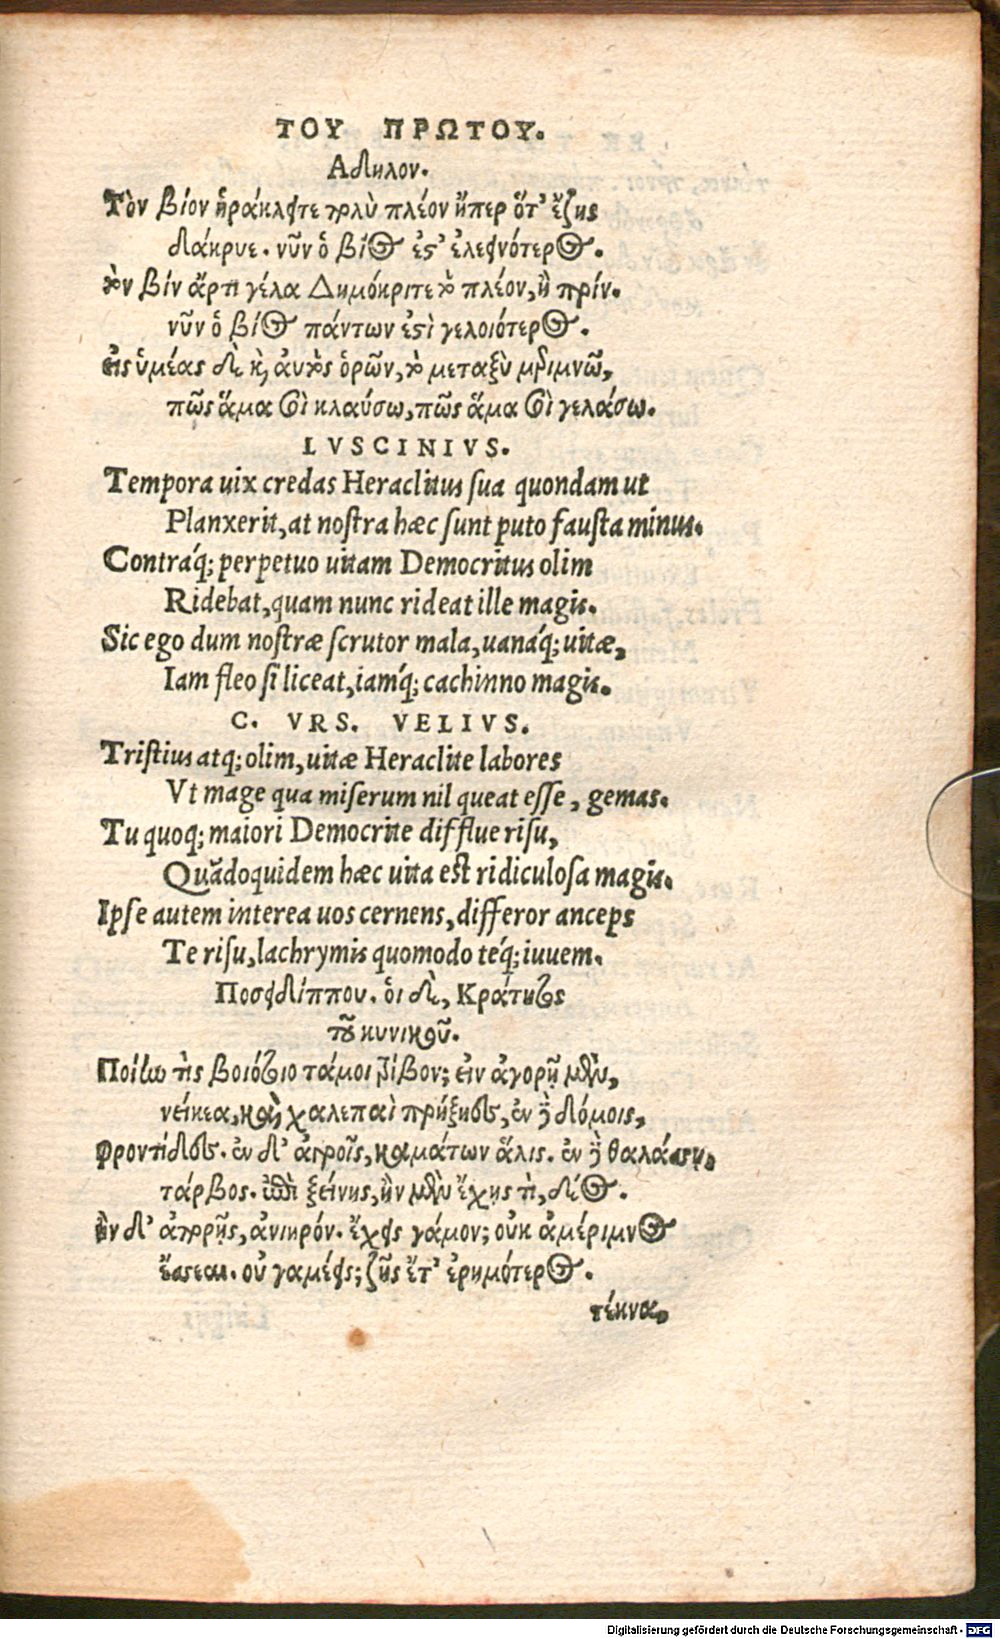 ΤΟΥ ΠΡΩΤΟΥ.
Αδηλον.
Τὸν βίον ἡράκλειτε πολὺ πλέον ἤπερ ὅτ' ἔζης
δάκρυε. νῦν ὁ βίος ἐστ' ἐλεεινότερος.
τὸν βίν ἄρτι γέλα Δημόκριτε τὸ πλέον, ἢ πρίν.
νῦν ὁ βίος πάντων ἐστὶ γελοιότερος.
εἰς ὑμέας δὲ κὶ αὐτὸς ὁρῶν, τὸ μεταξὺ μεριμνῶ,
πῶς ἅμα σοὶ κλαύσω, πῶς ἅμα σοὶ γελάσω.
LVSCINIVS.
Tempora uix credas Heraclitus sua quondam ut
Planxerit, at nostra hæc sunt puto fausta minus.
Contráq; perpetuo uitam Democritus olim
Ridebat, quam nunc rideat ille magis.
Sic ego dum nostræ scrutor mala, uanáq; uitæ,
Iam fleo si liceat, iamq́; cachinno magis.
C. VRS. VELIVS.
Tristius atq; olim, uitæ Heraclite labores
Vt mage qua miserum nil queat esse, gemas.
Tu quoq; maiori Democrite difflue risu,
Quãdoquidem hæc uita est ridiculosa magis.
Ipse autem interea uos cernens, differor anceps
Te risu, lachrymis quomodo teq́; iuuem.
Ποσειδίππου. ὁι δὲ, Κράτητος
τοῦ κυνικοῦ.
Ποίην τὶς βοιότοιο τάμοι τρίβον; εἰν ἀγορῇ μὲν,
νείκεα, καὶ χαλεπαὶ πρήξηες, ἐν δὲ δόμοις,
Φροντίδες. ἐν δ' ἀγροῖς, καμάτων ἅλις. ἐν δὲ θαλάσσῃ,
τάρβος. ἐπὶ ξείνης, ἢν μὲν ἔχῃς τὶ, δέος.
ἢν δ' ἀπορῇς, ἀνιηρόν. ἔχεις γάμον; οὐκ ἀμέριμνος
ἔσσεαι. οὐ γαμέεις; ζῇς ἔτ' ἐρημότερος.
τέκνα,
Digitalisierung gefördert durch die Deutsche Forschungsgemeinschaft - DFG